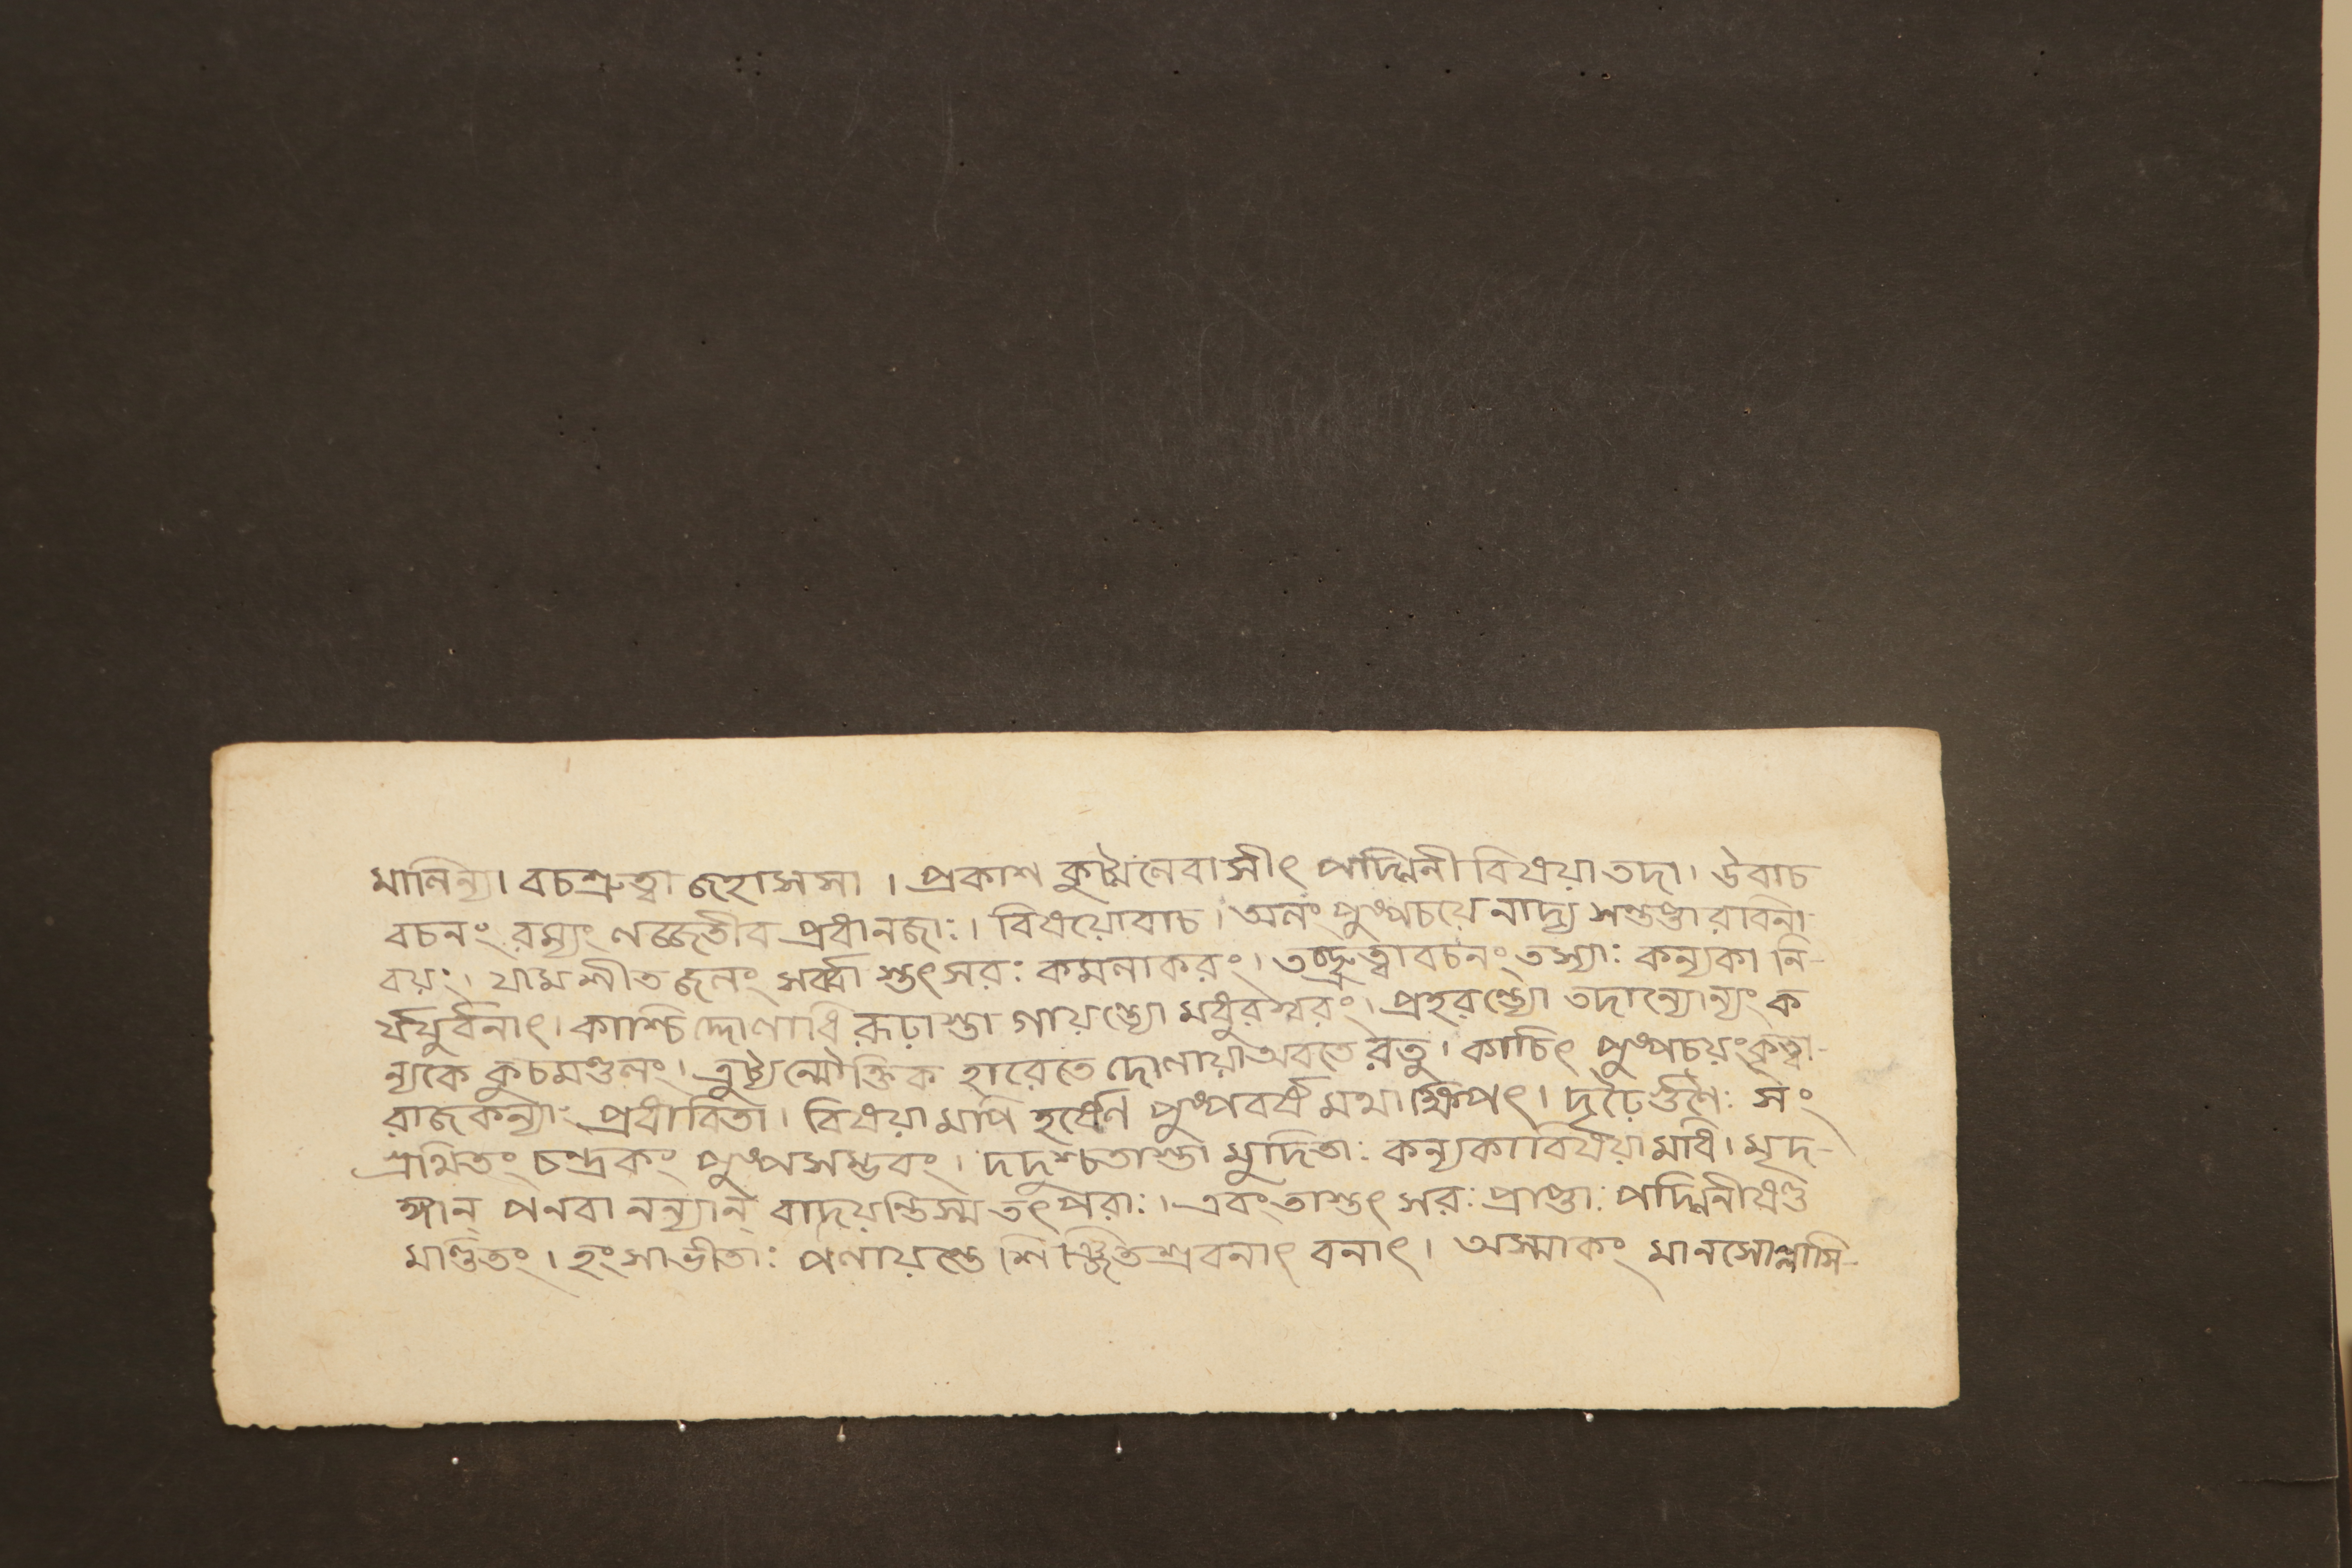 মালিন্যা। বচশ্রুত্বা জহাসসা । প্রকাশ কুট্মলৈবাসীৎ পদ্মিনী বিষয়া তদা। উবাচ
বচনং রম্যং লজ্জতীব প্রধানজাঃ। বিষয়োবাচ। অলং পুষ্পচয়ে নাদ্য সন্তপ্তা রবিনা
বয়ং। যাম শীত জলং সর্ব্বা স্তৎসরঃ কমলাকরং। তচ্ছ্রুত্বা বচনং তস্যাঃ কন্যকা নি-
র্যযুর্বনাৎ। কাশ্চি দ্দোলাধি রূঢ়াস্তা গায়ন্ত্যো মধুরস্বরং। প্রহরন্ত্যো তদান্যোন্যং ক
ন্যকে কুচমণ্ডলং। ত্রুট্যন্মৌক্তিক হারেতে দোলায়া অবতে রতু। কাচিৎ পুষ্পচয়ং কৃত্বা-
রাজকন্যাঃ প্রধাবিতা। বিষয়ামপি হর্ষেণ পুষ্পবর্ষ মথাক্ষিপৎ। দৃঢ়ৈর্গুণৈঃ সং
গ্রথিতং চন্দ্রকং পুষ্পসম্ভবং। দদুশ্চতাস্তা মুদিতাঃ কন্যকাবিষয়ামধি। মৃদ-
ঙ্গান্ পনবা নন্যান্ বাদয়ন্তিস্ম তৎপরাঃ। এবং তাস্তৎ সরঃ প্রাপ্তাঃ পদ্মিনীষণ্ড
মণ্ডিতং। হংসাভীতাঃ পলায়ন্তে শিঞ্জিতশ্রবনাৎ বনাৎ। অস্মাকং মানসোল্লাসি-